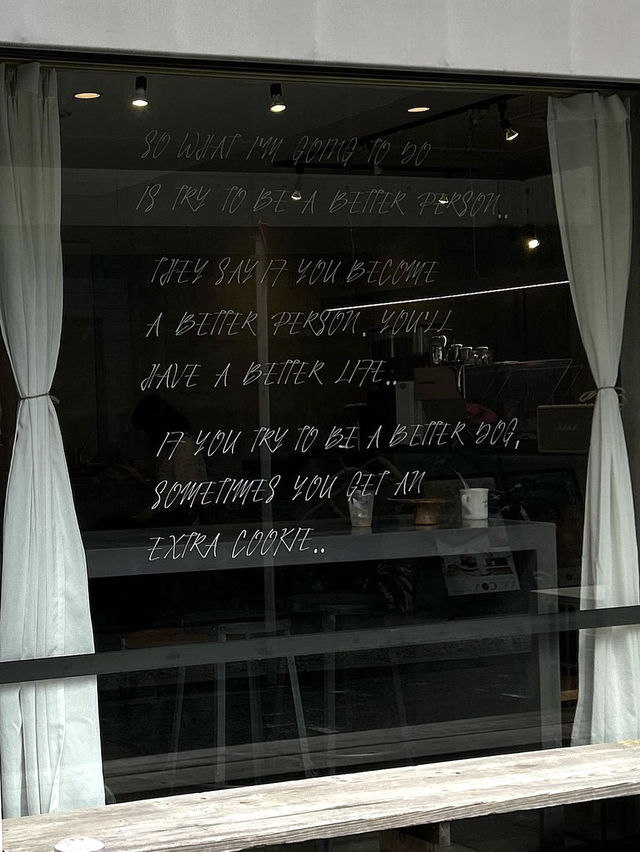 SO WHAT I'M GOING TO DO
IS TRY TO BE A BETTER PERSON..
THEY SAY IF YOU BECOME
A BETTER PERSON. YOU'LL
HAVE A BETTER LIFE..
IF YOU TRY TO BE A BETTER DOG,
SOMETIMES YOU GET AN
EXTRA COOKIE..